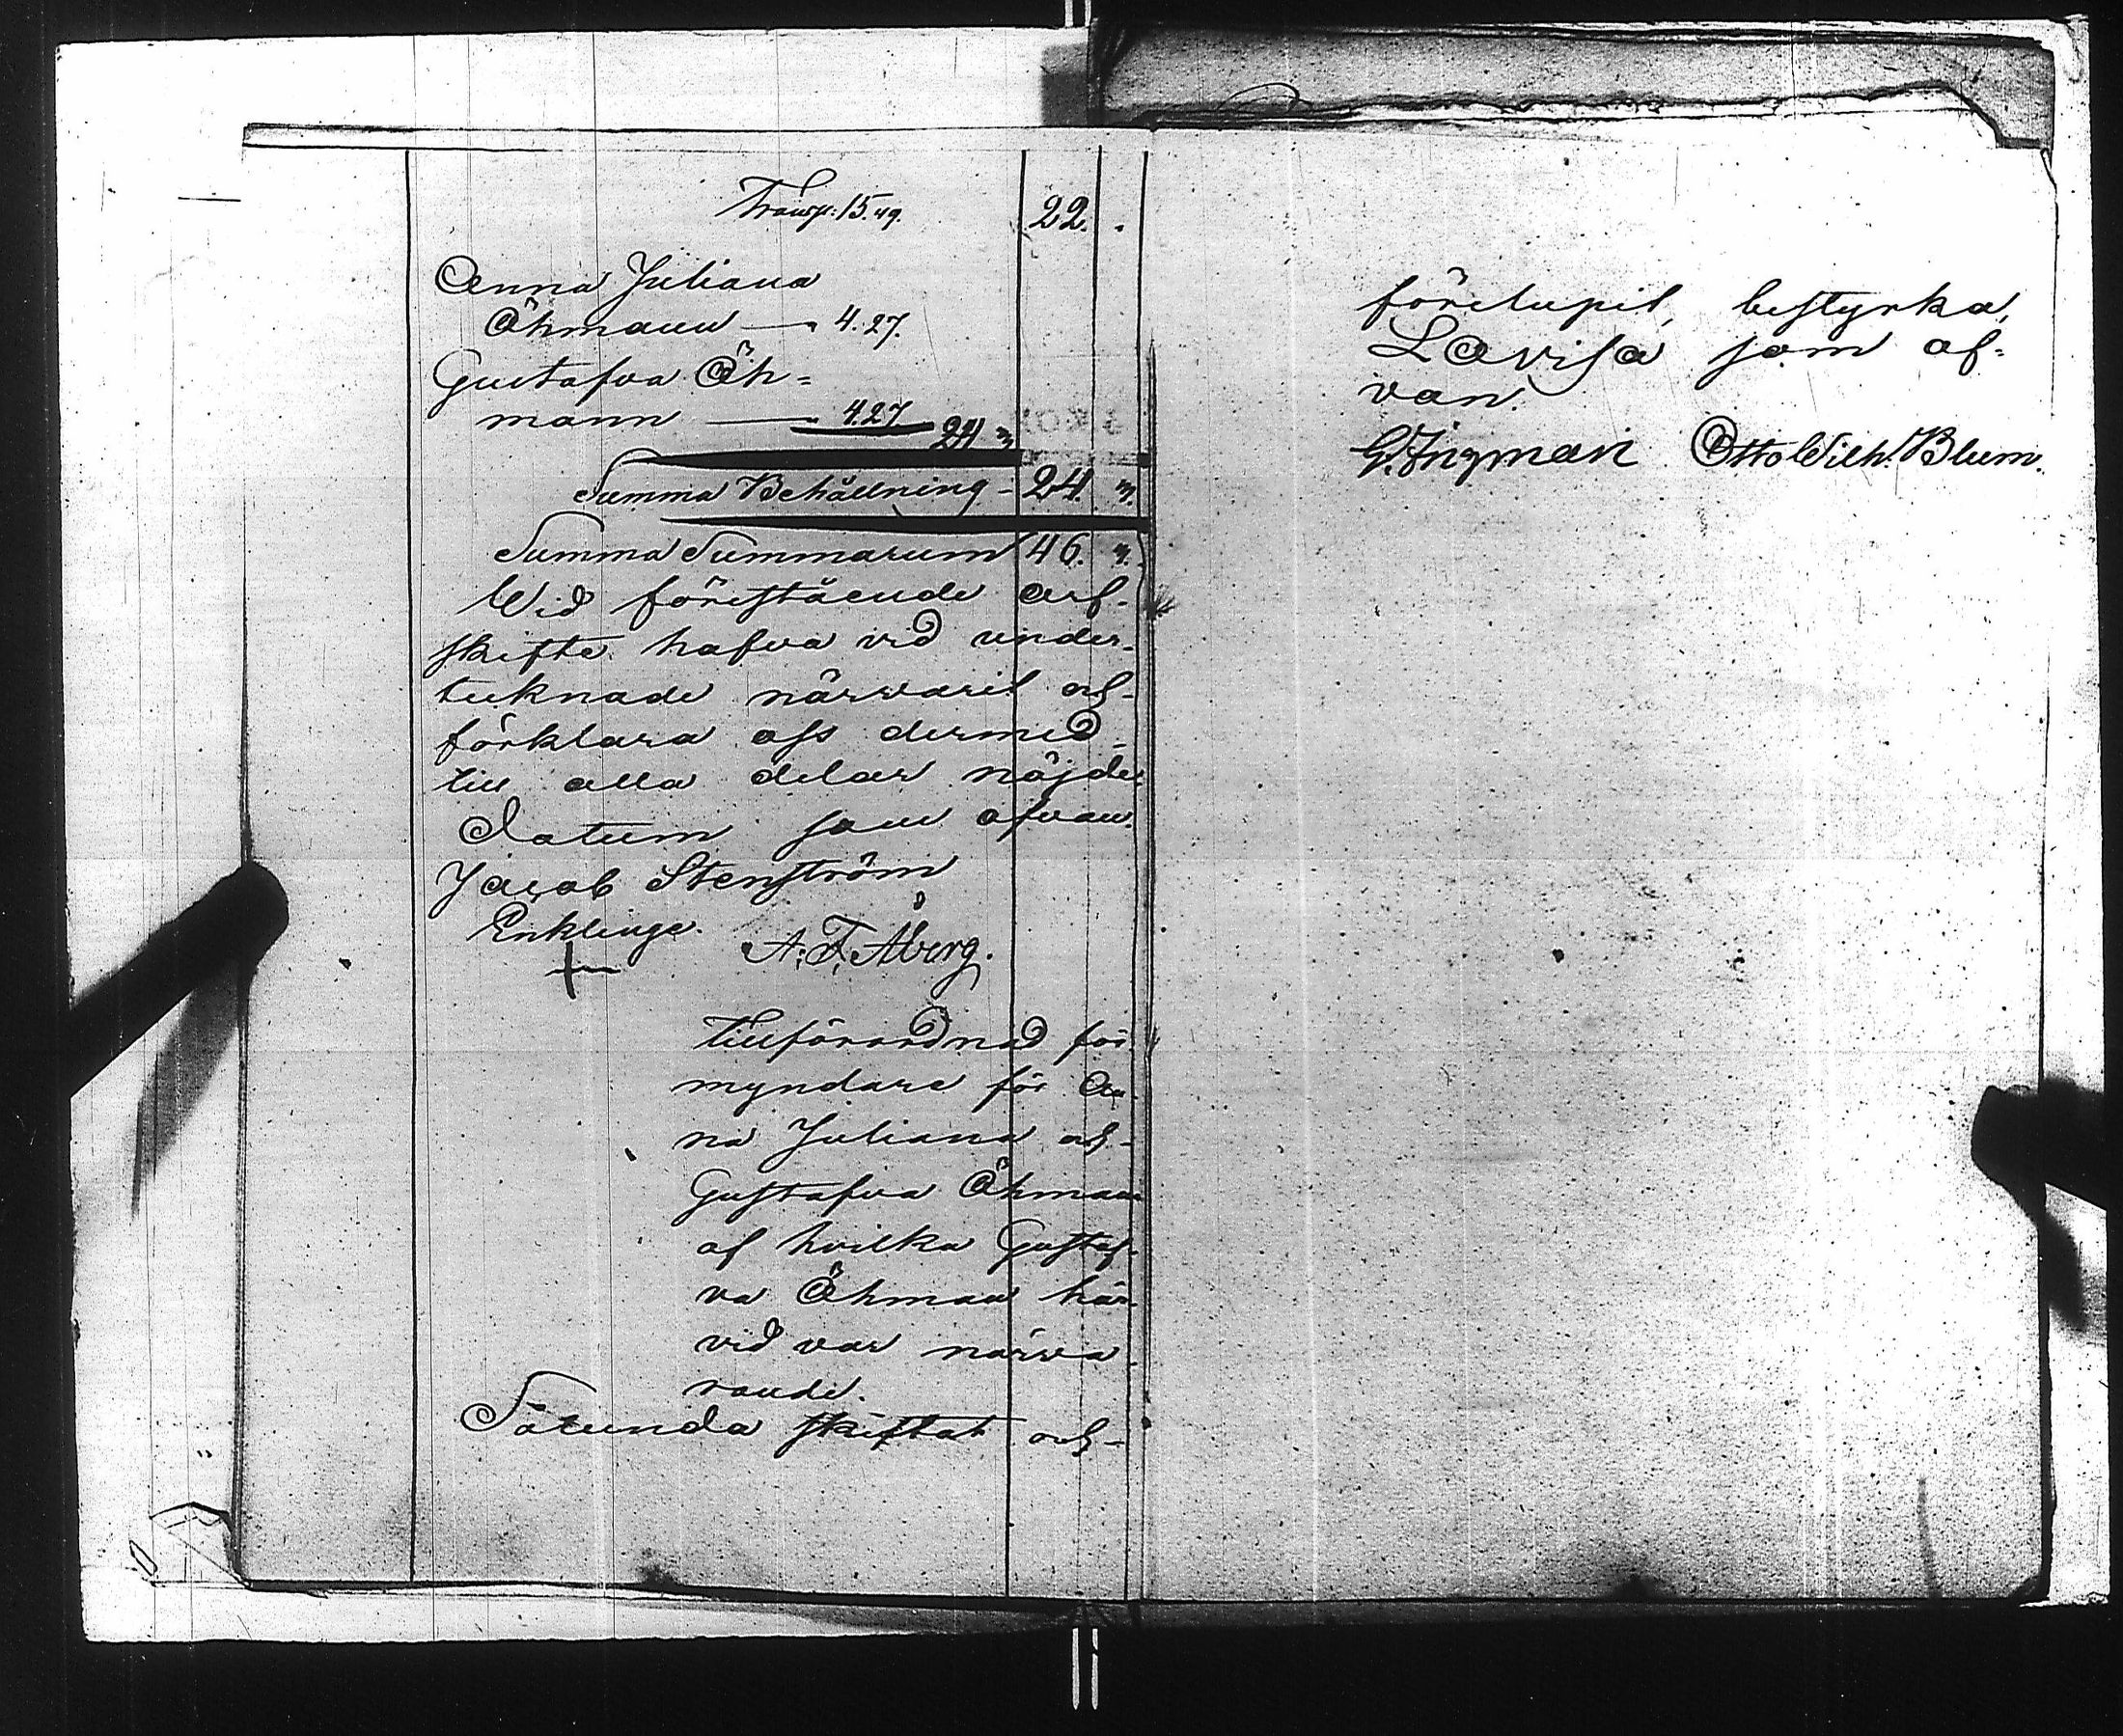 Transp: 15.49. 22. .
Anna Juliana
Öhmann — 4.27.
Gustafva Öh=
mann — 4.27 24 "
Summa Behållning - 24. "
Summa Summarum 46. "
Wid förestående arf-
skifte hafva vid under-
tecknade närvarit och
förklara oss dermed
till alla delar nöjde
Datum som ofvan.
Jacob Stenström
Enklinge. A. F. Åberg.
tillförordnad för
myndare för An-
na Juliana och
Gustafva Öhman
af hvilka Gustaf-
va Öhman här-
vid var närva-
rande.
Sålunda skiftat och
förelupit, bestyrka,
Lovisa som of=
van.
G. Ingman Otto Wilh. Blum.